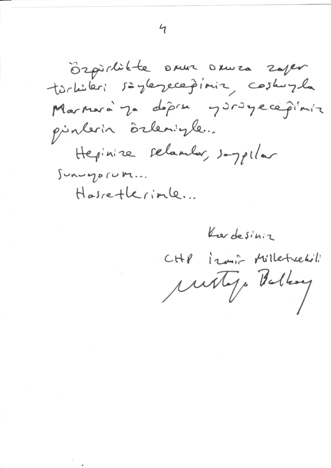 4
Özgürlükte omuz omuza zafer
türküleri söyleyeceğimiz, coşkuyla
Marmara'ya doğru yürüyeceğimiz
günlerin özlemiyle...
Hepinize selamlar, saygılar
sunuyorum...
Hasretlerimle...
Kardeşiniz
CHP İzmir Milletvekili
Mustafa Balbay